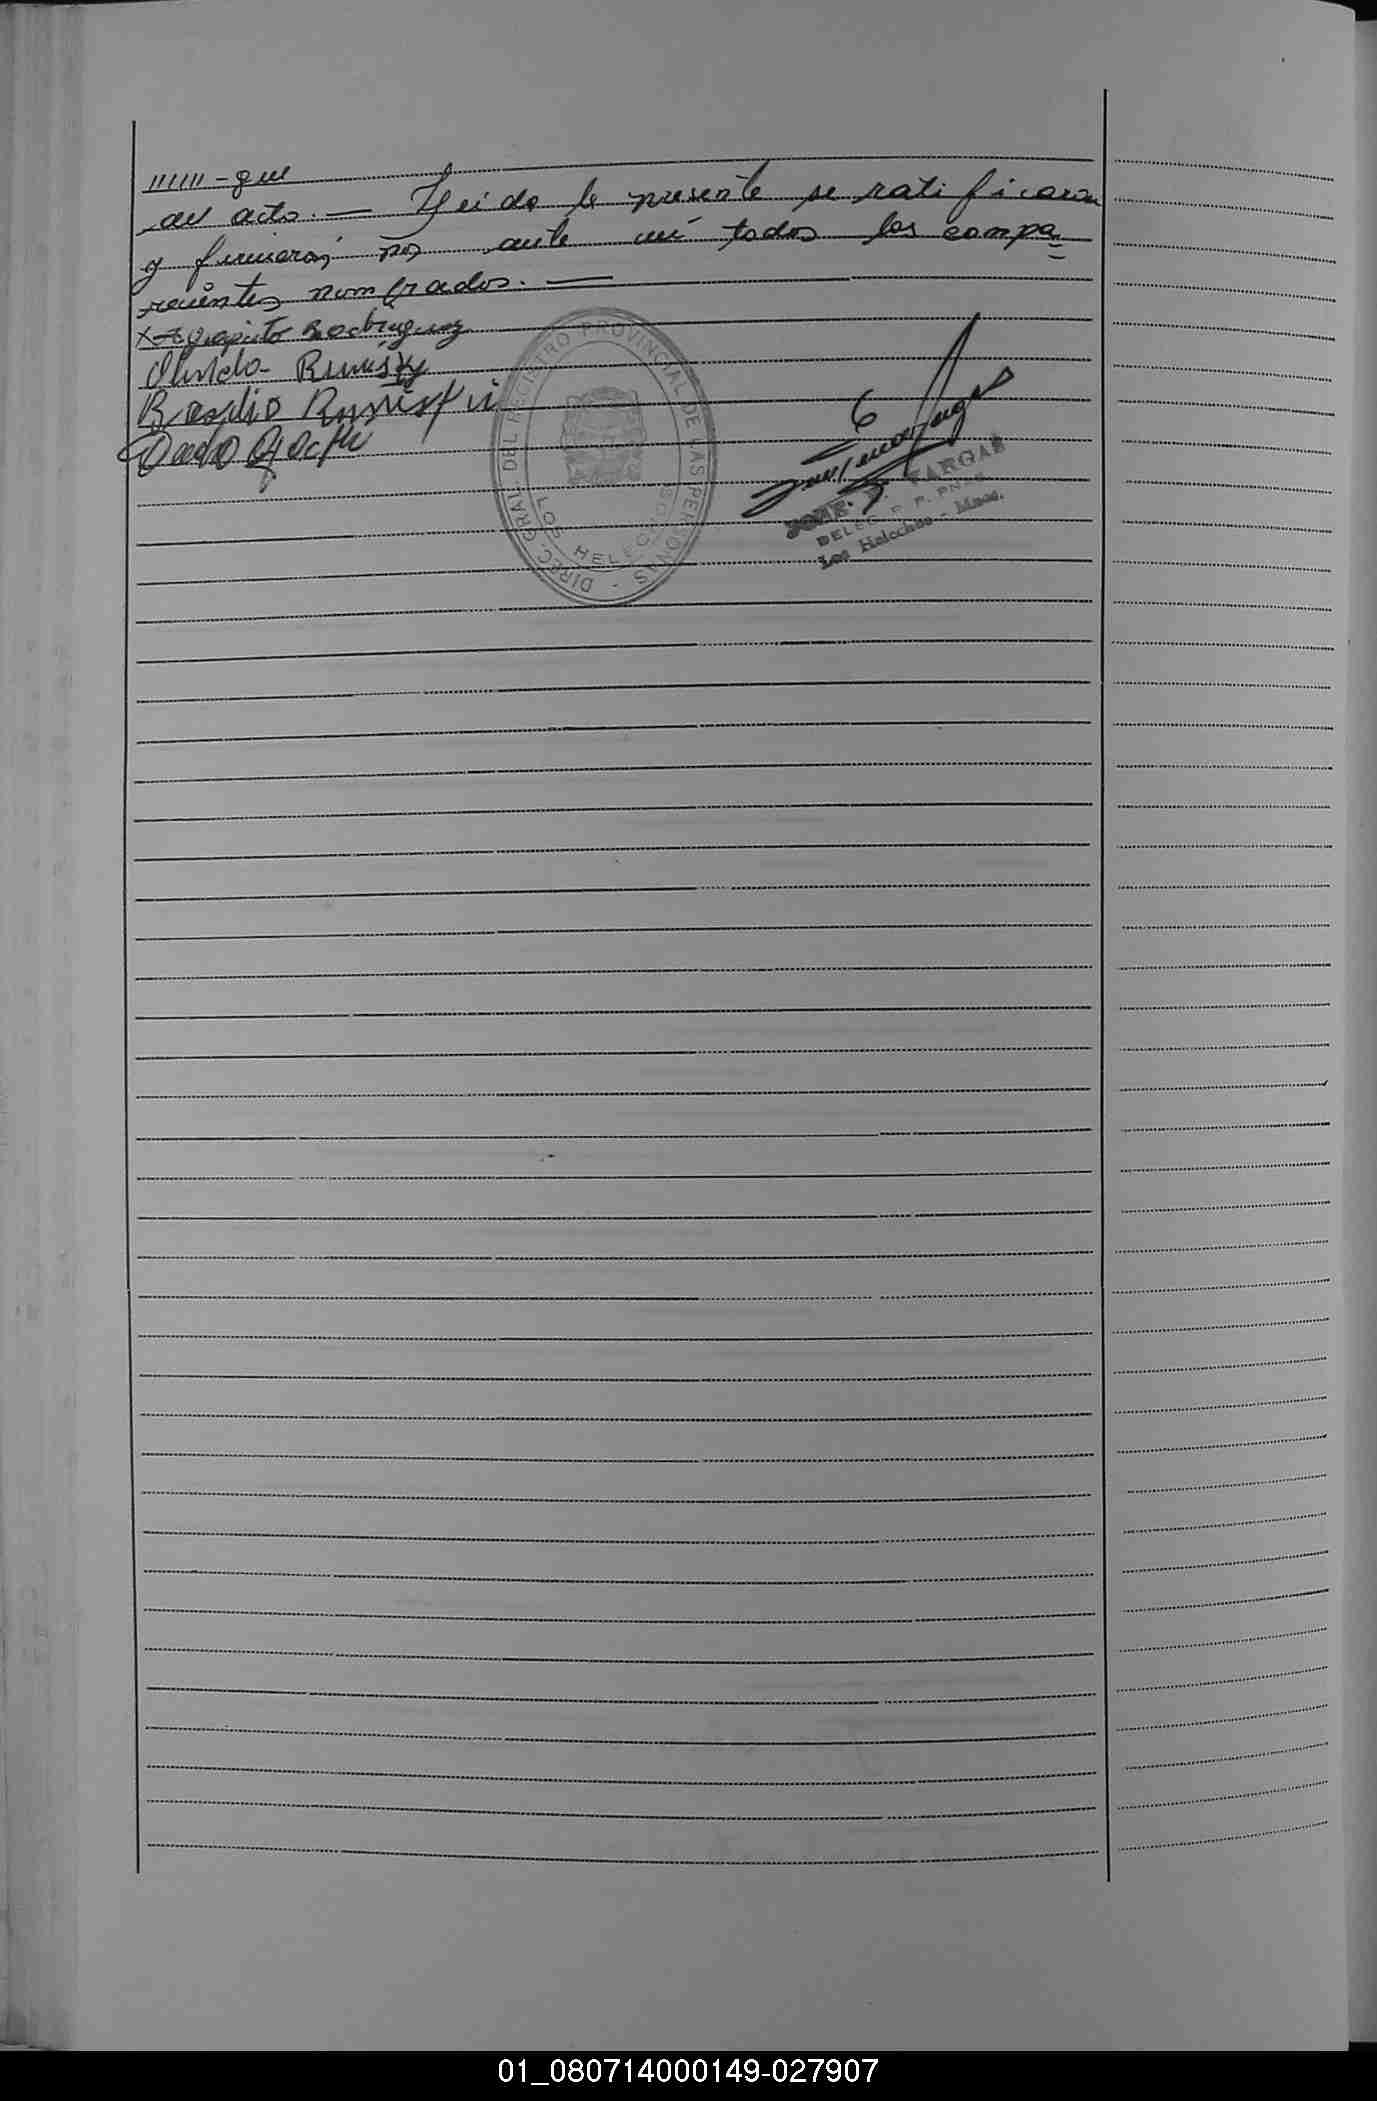 """""" - que
del acto. — Leida la presente se ratificaron
y firmaron por ante mi todos los compa
recientes nombrados. —
x Agapito Rodriguez
Olinda
Basilio
DIREC. GRAL. DEL REGISTRO PROVINCIAL DE LAS PERSONAS -
LOS HELECHOS
JOSE. VARGAS
DELEG. R. P. PNAS.
Los Helechos - Mnes.
01_080714000149-027907